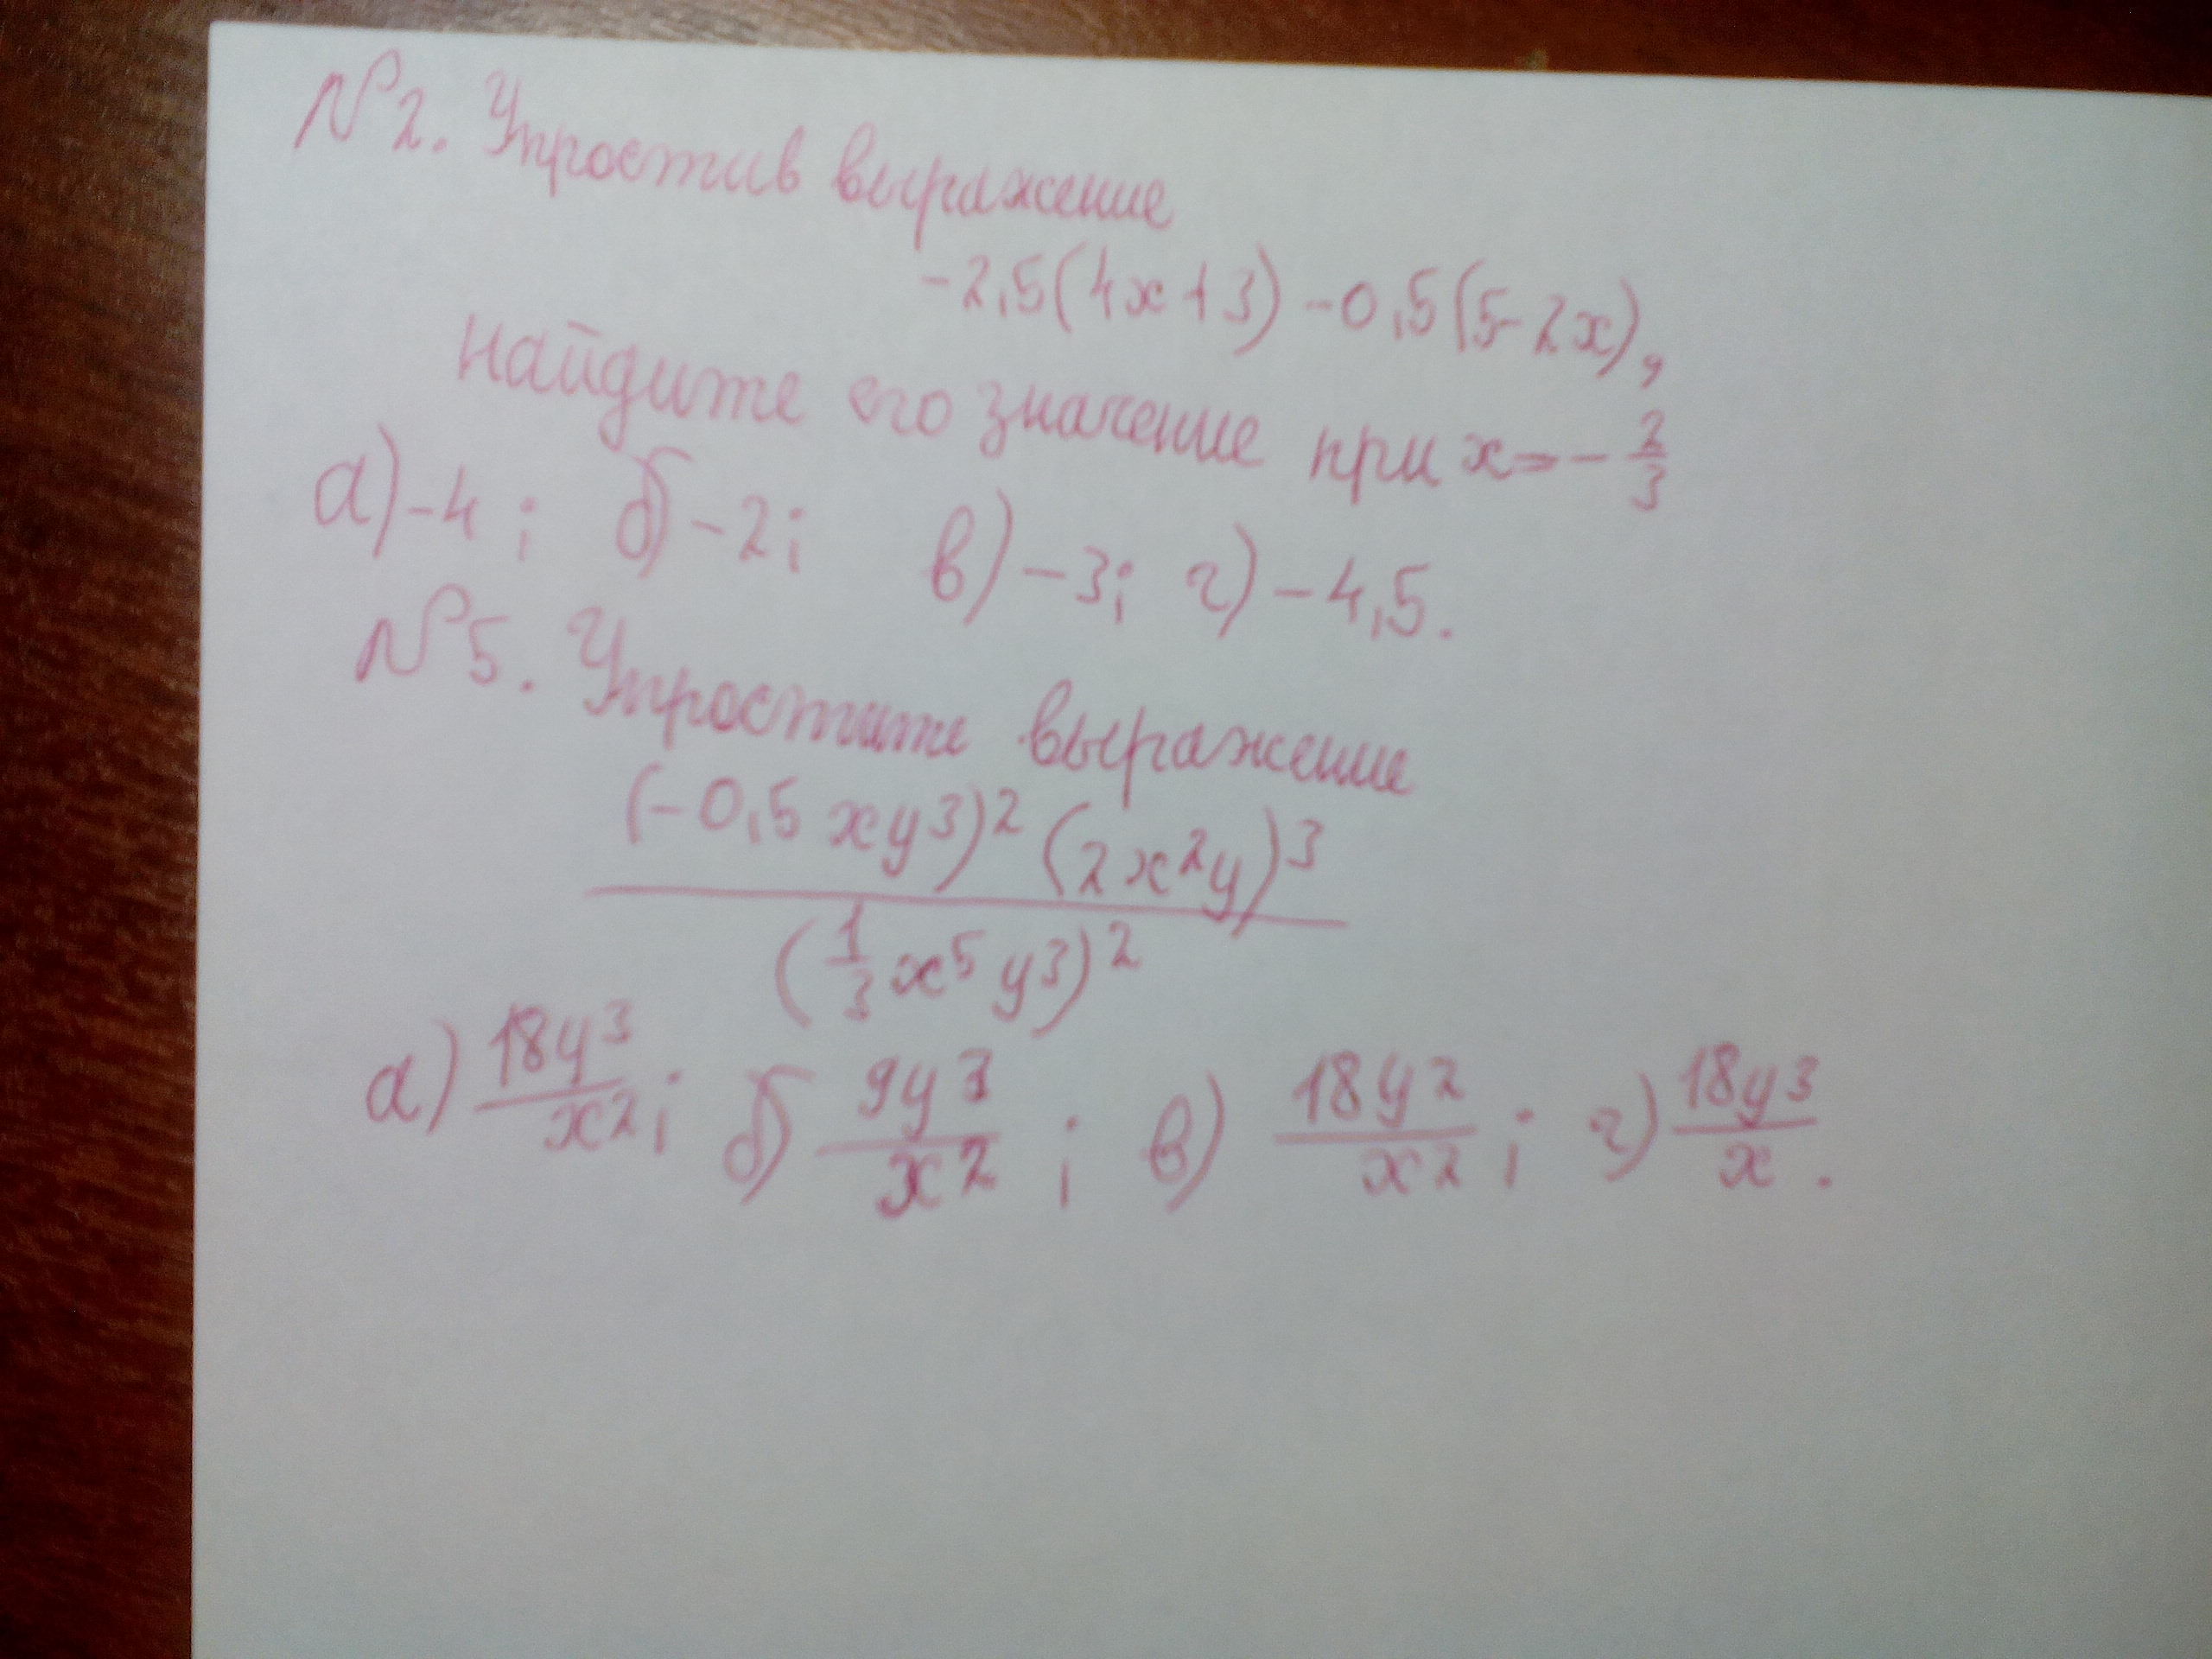 №2. Упростив выражение
-2,5(4x+3)-0,5(5-2x),
найдите его значение при x=-2/3
а)-4; б)-2; в)-3; г)-4,5.
№5. Упростите выражение
(-0,5xy³)² (2x²y)³
(1/3x⁵y³)²
а) 18y³/x²; б) 9y³/x²; в) 18y²/x²; г) 18y³/x.